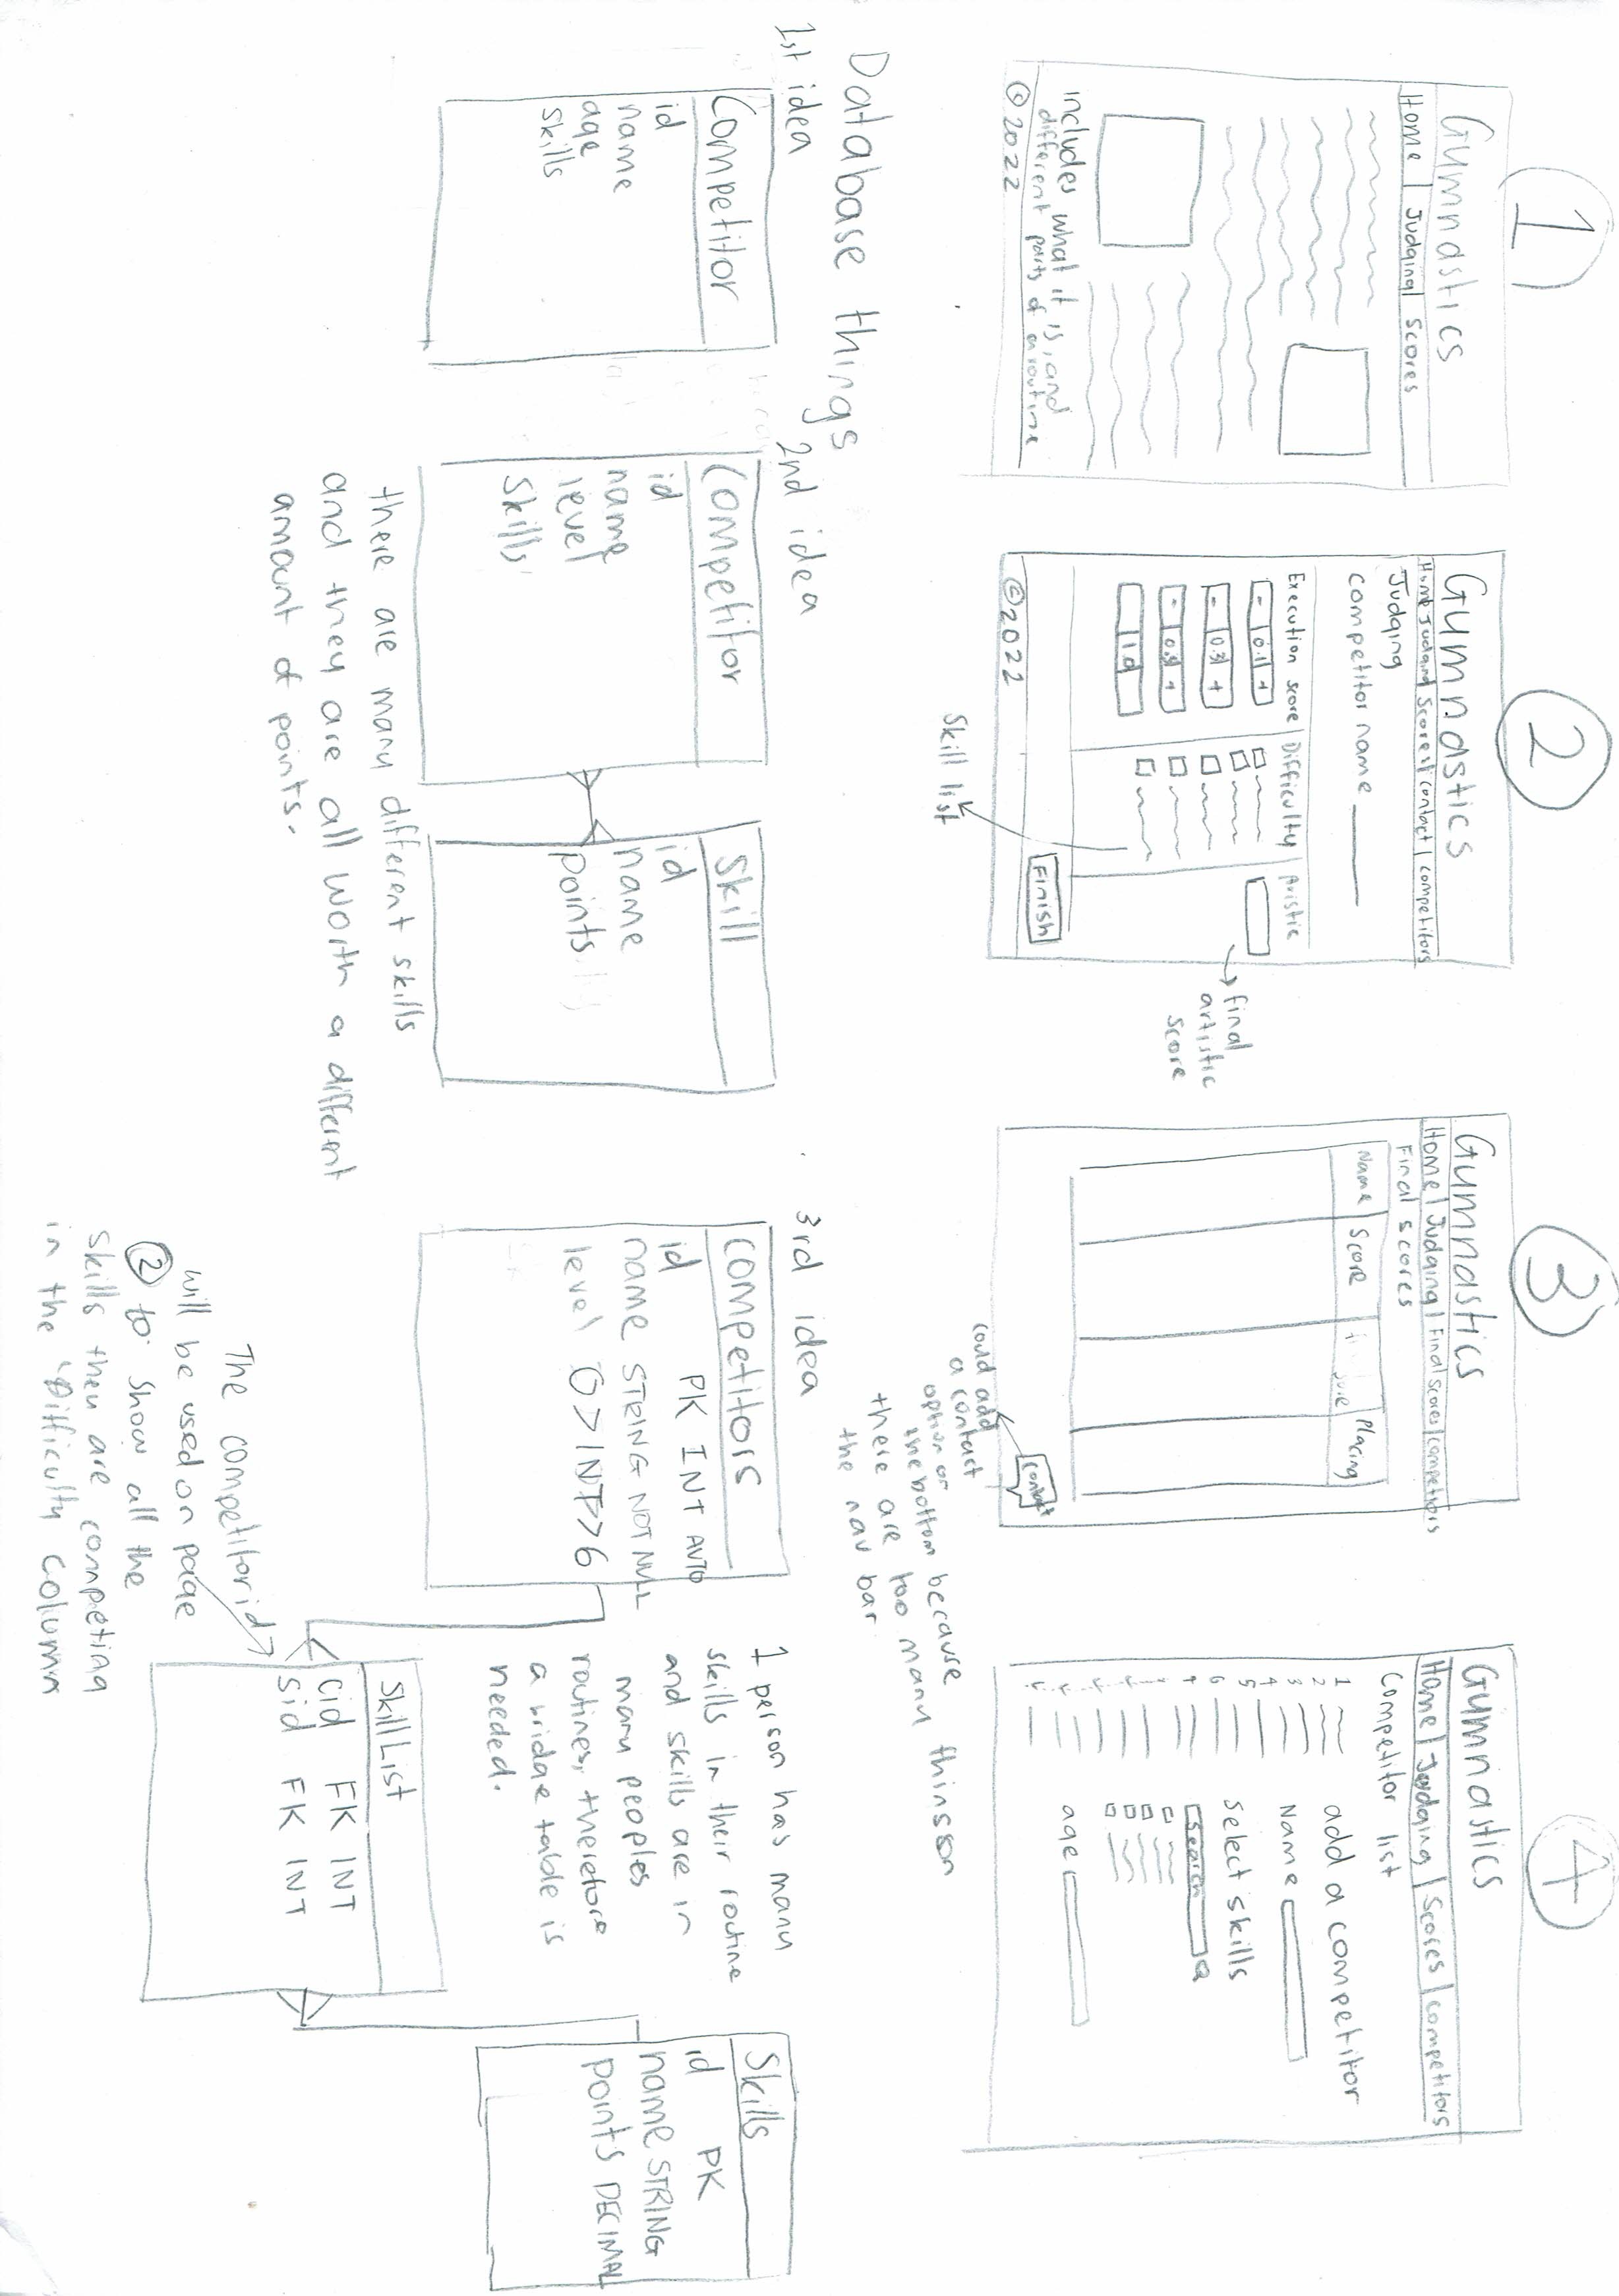 1
Gymnastics
Home | Judging | Scores
Includes what it is, and
different parts of a routine
© 2022
2
Gymnastics
Home Judging Scores | contact | competitors
Judging
competitor name
Execution score | Difficulty | Aristic
- 0.1 +
- 0.3 +
- 0.5 +
1.0
Finish
© 2022
Skill list
final
artistic
score
3
Gymnastics
Home | Judging | Final Scores | competitors
Final scores
Name Score Placing
contact
could add
a contact
option on
the bottom because
there are too many things on
the nav bar
4
Gymnastics
Home | Judging | Scores | competitors
Competitor list
1
2
3
4
5
6
7
add a competitor
Name
Select skills
Search
age
Database things
1st idea
Competitor
id
name
age
skills
2nd idea
Competitor
id
name
level
skills
Skill
id
name
points
there are many different skills
and they are all worth a different
amount of points.
3rd idea
competitors
id PK INT AUTO
name STRING NOT NULL
level 0 > INT > 6
1 person has many
skills in their routine
and skills are in
many peoples
routines, therefore
a bridge table is
needed.
Skill List
cid FK INT
sid FK INT
Skills
id PK
name STRING
points DECIMAL
The competitor id
will be used on page
2 to show all the
skills they are competing
in the "Difficulty column